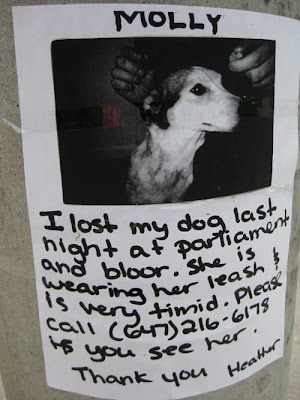 MOLLY
I lost my dog last
night at parliament
and bloor. She is
wearing her leash &
is very timid. Please
call (647) 216-6178
if you see her.
Thank you Heather